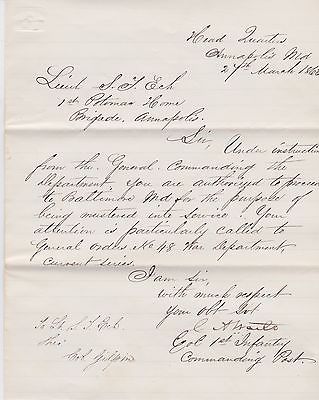 Head Quarters
Annapolis Md
27th March 186
Lieut S. T. Eck
1st Potomac Home
Brigade, Annapolis.
Sir, Under instructions
from the General Commanding the
Department, you are authorized to proceed
to Baltimore Md for the purpose of
being mustered into service. Your
attention is particularly called to
General Orders No 48 War Department
current series.
I am sir,
with much respect
your obt Svt
Col 1st Infantry
Commanding Post.
To Lt. S T Eck